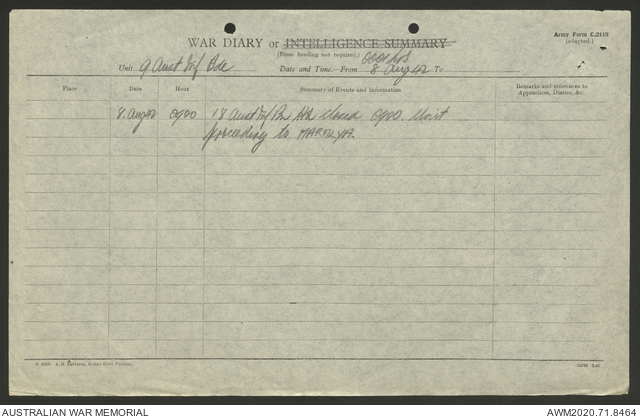 Army Form C.2118
(adapted.)
WAR DIARY or INTELLIGENCE SUMMARY
(Erase heading not required.)
Unit 9 Aust Inf Bde Date and Time—From 8 Aug 42 To
Place Date Hour Summary of Events and Information Remarks and references to
Appendices, Diaries, &c.
8 Aug 42 0900 18 Aust Inf Bn Adv closed 0900. Unit
proceeding to
AUSTRALIAN WAR MEMORIAL AWM2020.71.8464